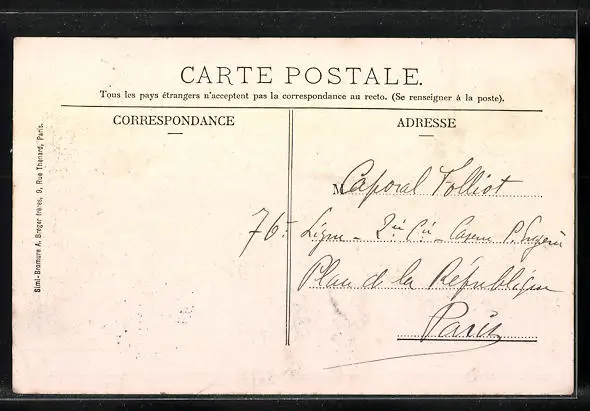 CARTE POSTALE.
Tous les pays étrangers n'acceptent pas la correspondance au recto. (Se renseigner à la poste).
CORRESPONDANCE
ADRESSE
M Caporal Folliot
76e Ligne - 2e Cie - Caserne P. Eugène
Place de la République
Paris
Simi-Bromure A. Breger frères, 9, Rue Thénard, Paris.